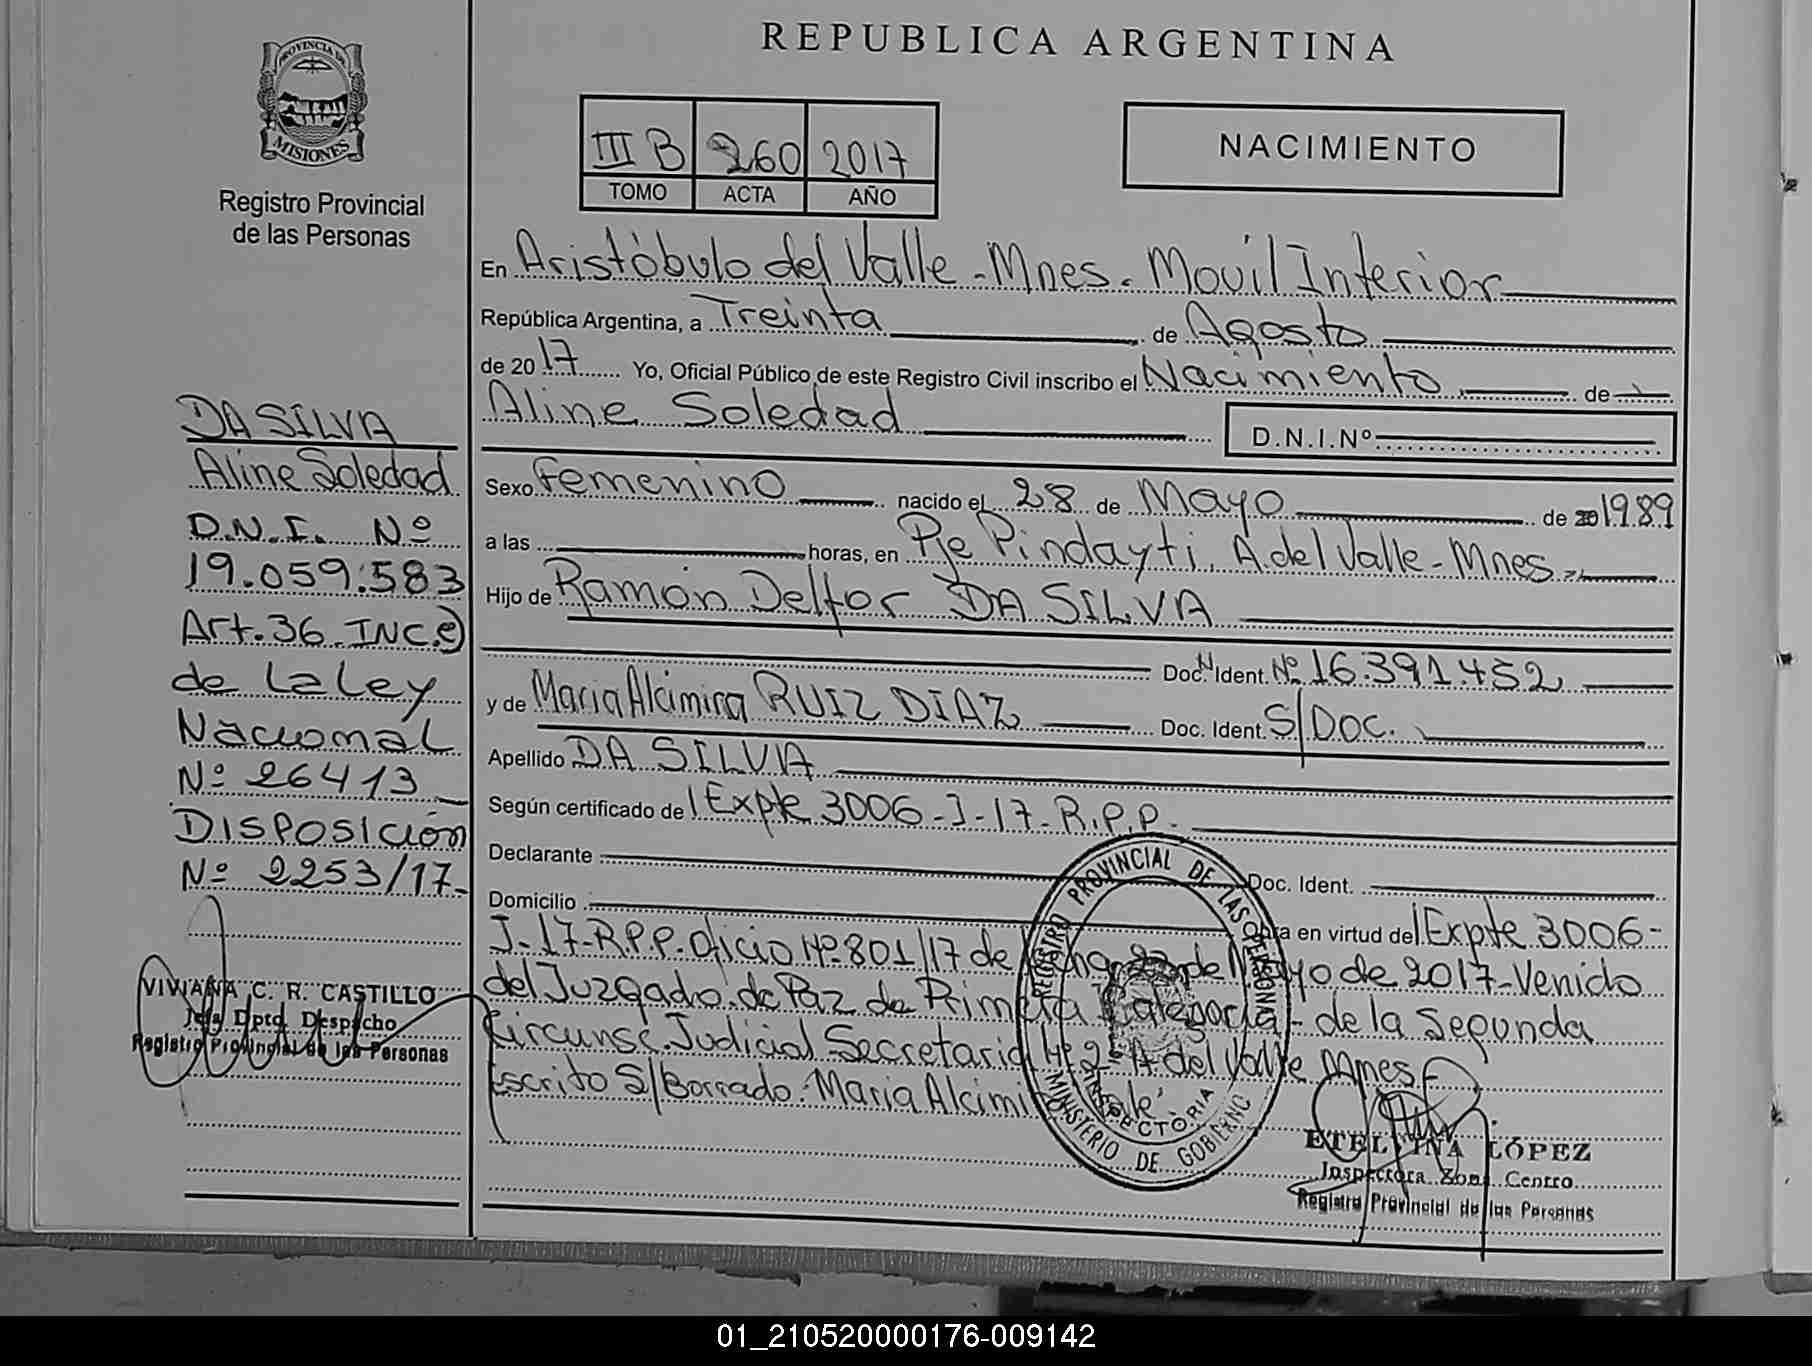 REPUBLICA ARGENTINA
PROVINCIA DE
MISIONES
Registro Provincial
de las Personas
III B 260 2017
TOMO ACTA AÑO
NACIMIENTO
En Aristóbulo del Valle - Mnes. Movil Interior
República Argentina, a Treinta de Agosto
de 2017 Yo, Oficial Público de este Registro Civil inscribo el Nacimiento de
Aline Soledad
D.N.I. Nº
Sexo Femenino nacido el 28 de Mayo de 1989
a las horas, en Pje Pindayti, A. del Valle - Mnes.
Hijo de Ramón Delfor DA SILVA
Doc. Ident. Nº 16.391.452
y de Maria Alcimira RUIZ DIAZ Doc. Ident. S/Doc.
Apellido DA SILVA
Según certificado de Expte 3006-J-17-R.P.P.
Declarante Doc. Ident.
Domicilio
en virtud de Expte 3006-
J-17-R.P.P. Oficio Nº 801/17 de de 2017- Venido
del Juzgado de Paz de Primera Categoria - de la Segunda
Circunsc. Judicial Secretaria Nº 2 A del Valle Mnes
Escrito S/Borrado: Maria Alcimi
DA SILVA
Aline Soledad
D.N.I. Nº
19.059.583
Art. 36 INC. e)
de la Ley
Nacional
Nº 26413
DISPOSICIÓN
Nº 2253/17-
VIVIANA C. R. CASTILLO
Jefa Dpto Despacho
Registro Provincial de las Personas
REGISTRO PROVINCIAL DE LAS PERSONAS
MINISTERIO DE GOBIERNO
ETELVINA LÓPEZ
Inspectora Zona Centro
Registro Provincial de las Personas
01_210520000176-009142